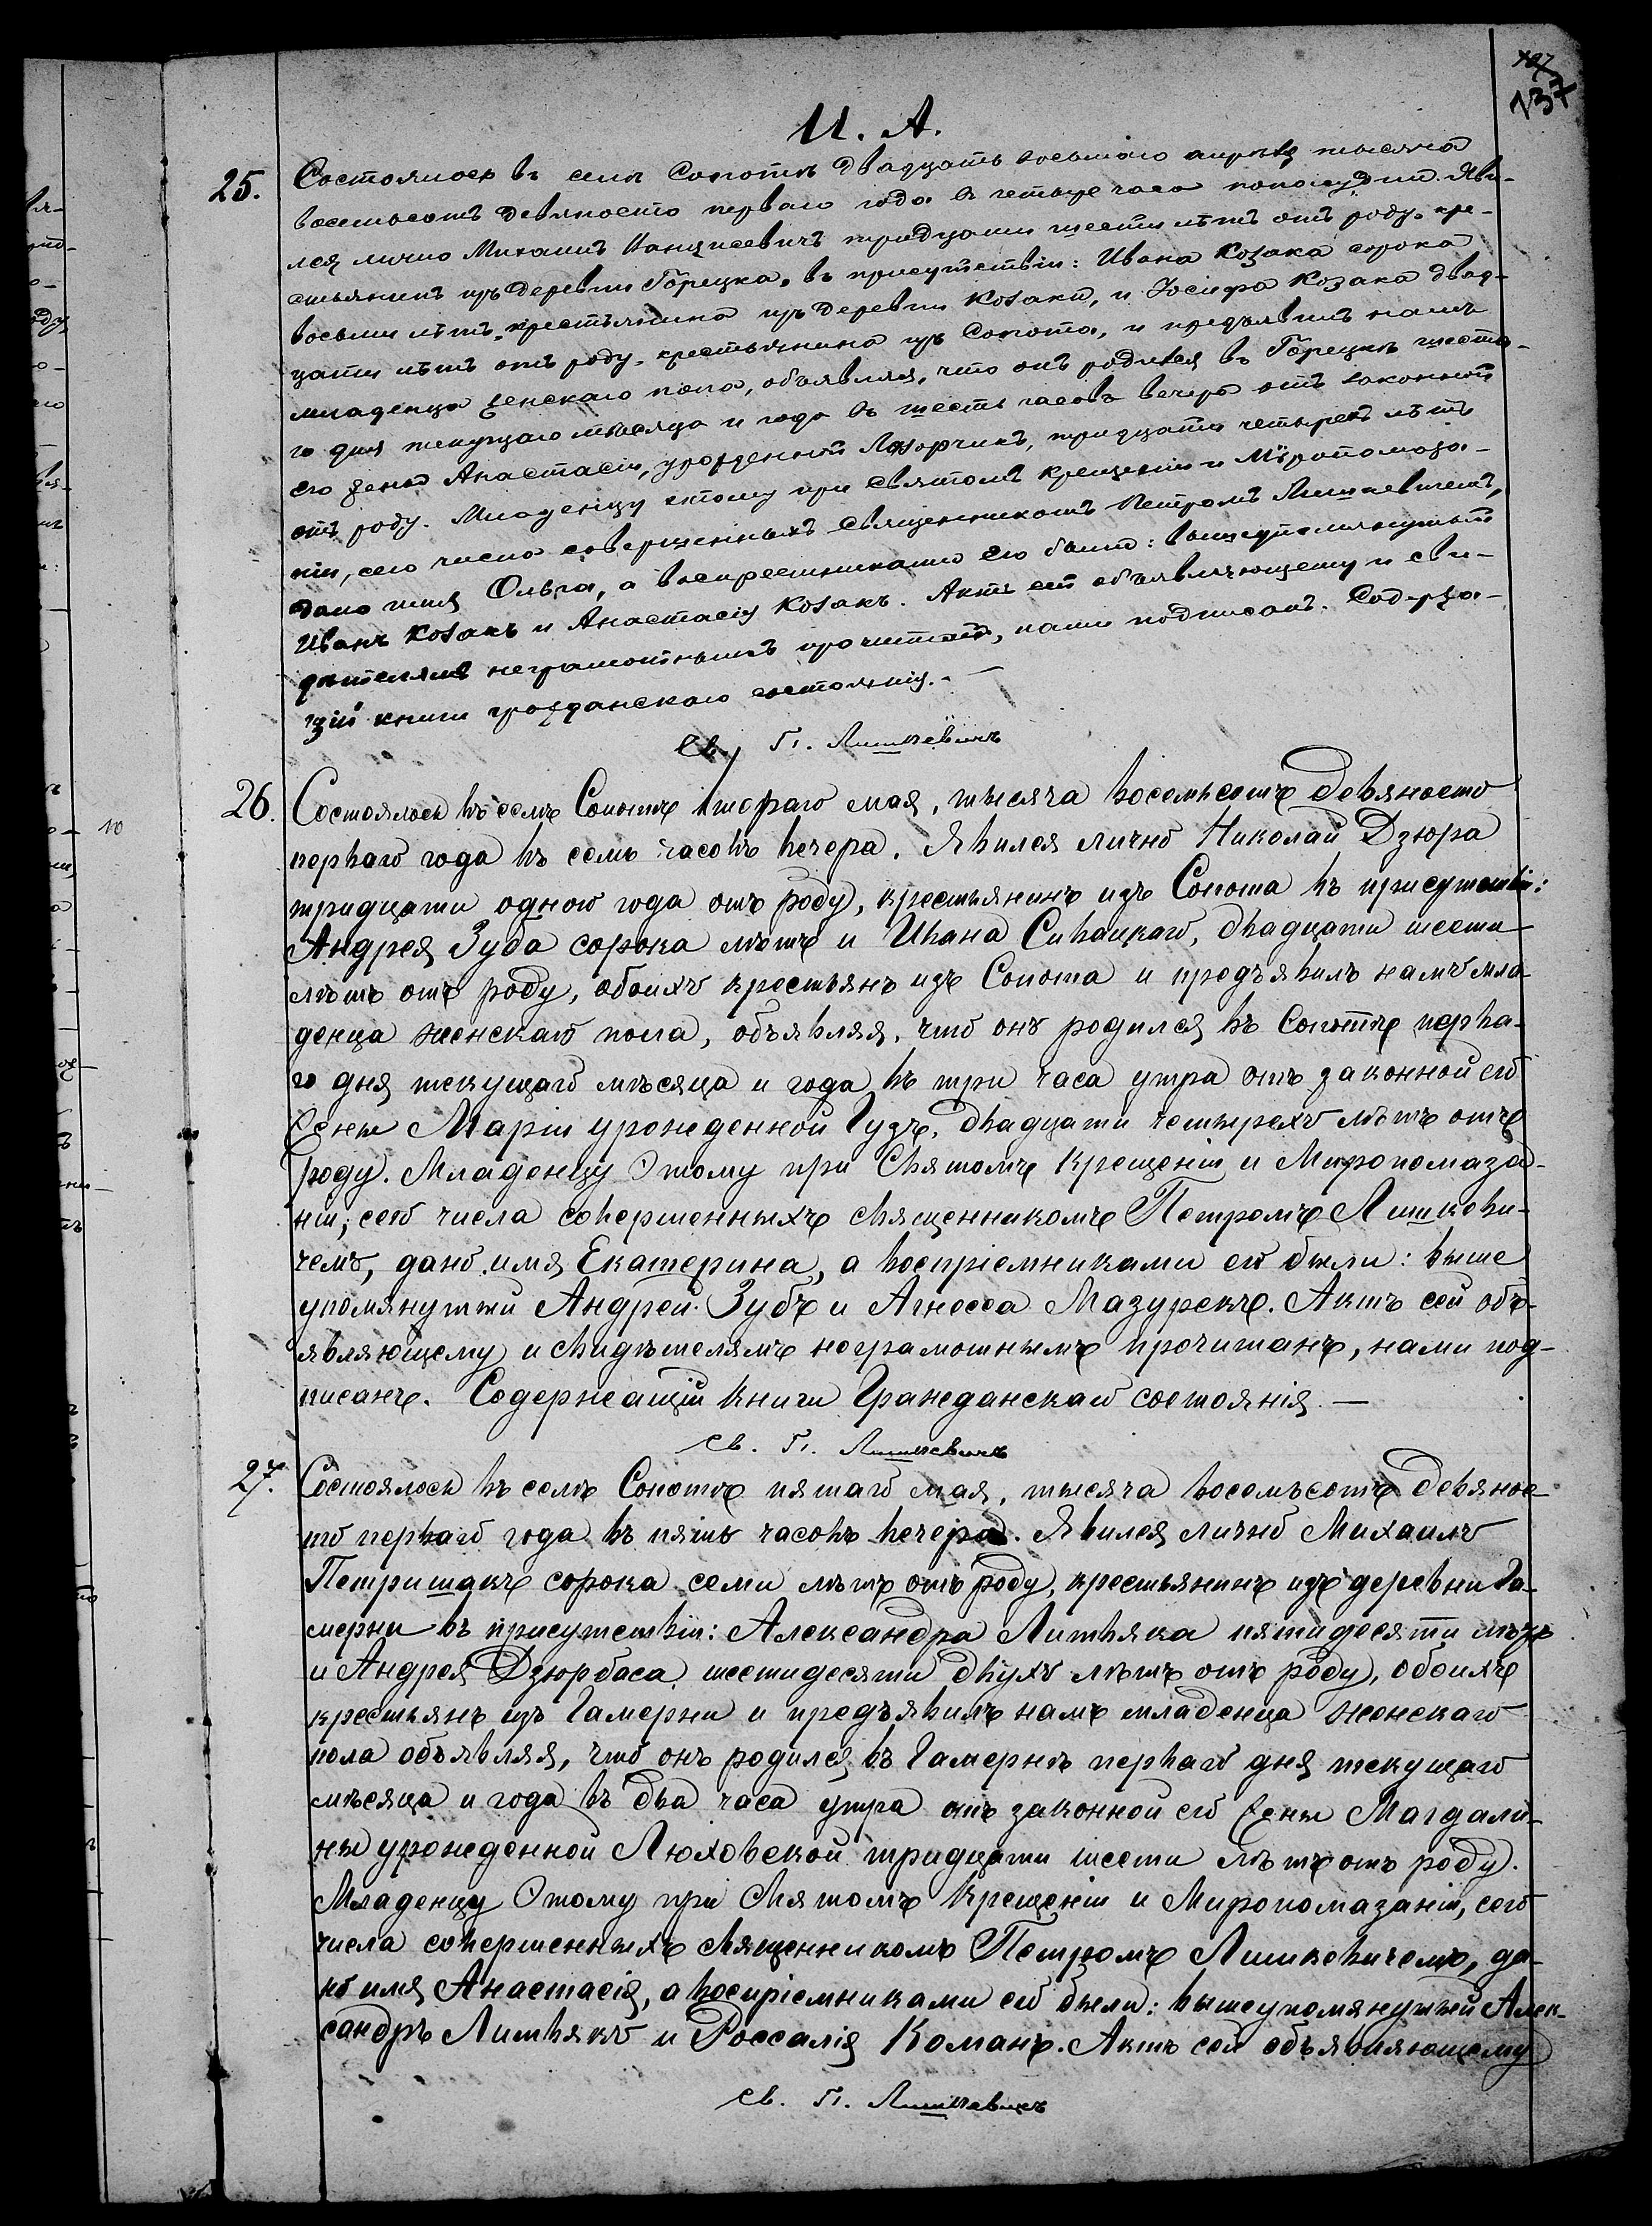 137
И. А.
25. Состоялось въ селѣ Сопотѣ двадцать восьмаго апрѣля тысяча
восемьсотъ девяносто перваго года въ четыре часа пополудни. Яви-
лся лично Михаилъ тридцати шести лѣтъ отъ роду, кре-
стьянинъ изъ деревни Горецка, въ присутствіи: Ивана Козака сорока
восьми лѣтъ, крестьянина изъ деревни Козаки, и Іосифа Козака двад-
цати лѣтъ отъ роду, крестьянина изъ Сопота, и предъявилъ намъ
младенца женскаго пола, объявляя, что онъ родился въ Горецкѣ шеста-
го дня текущаго мѣсяца и года въ шесть часовъ вечера отъ законной
его жены Анастасіи, урожденной Лазорчикъ, тридцати четырехъ лѣтъ
отъ роду. Младенцу этому при Святомъ Крещеніи и Мѵропомаза-
ніи, сего числа совершенныхъ Священникомъ Петромъ Лишкевичемъ,
дано имя Ольга, а воспріемниками его были: вышеупомянутый
Иванъ Козакъ и Анастасія Козакъ. Актъ сей объявляющему и сви-
дѣтелямъ неграмотнымъ прочитанъ, нами подписанъ. Содержа-
щій книги гражданскаго состоянія. —
Св. П. Лишкевичъ
26. Состоялось въ селѣ Сопотѣ втораго мая, тысяча восемьсотъ девяносто
перваго года въ семь часовъ вечера. Явился лично Николай Дзюра
тридцати одного года отъ роду, крестьянинъ изъ Сопота въ присутствіи:
Андрея Зуба сорока лѣтъ и Ивана Сивацкаго, двадцати шести
лѣтъ отъ роду, обоихъ крестьянъ изъ Сопота и предъявилъ намъ мла-
денца женскаго пола, объявляя, что онъ родился въ Сопотѣ перва-
го дня текущаго мѣсяца и года въ три часа утра отъ законной его
жены Маріи урожденной Гузъ, двадцати четырехъ лѣтъ отъ
роду. Младенцу этому при Святомъ Крещеніи и Миропомаза-
ніи, сего числа совершенныхъ Священникомъ Петромъ Лишкеви-
чемъ, дано имя Екатерина, а воспріемниками его были: выше
упомянутый Андрей Зубъ и Агнесса Мазурекъ. Актъ сей объ-
являющему и свидѣтелямъ неграмотнымъ прочитанъ, нами под-
писанъ. Содержащій книги Гражданскаго состоянія. —
Св. П. Лишкевичъ
27. Состоялось въ селѣ Сопотѣ пятаго мая, тысяча восемьсотъ девянос-
то перваго года въ пять часовъ вечера. Явился лично Михаилъ
Петришакъ сорока семи лѣтъ отъ роду, крестьянинъ изъ деревни Га-
мерни въ присутствіи: Александра Литвяка пятидесяти лѣтъ
и Андрея Дзюрбаса шестидесяти двухъ лѣтъ отъ роду, обоихъ
крестьянъ изъ Гамерни и предъявилъ намъ младенца женскаго
пола объявляя, что онъ родился въ Гамернѣ перваго дня текущаго
мѣсяца и года въ два часа утра отъ законной его жены Магдали-
ны урожденной Люховской тридцати шести лѣтъ отъ роду.
Младенцу этому при Святомъ Крещеніи и Миропомазаніи, сего
числа совершенныхъ Священникомъ Петромъ Лишкевичемъ, да-
но имя Анастасія, а воспріемниками его были: вышеупомянутый Алек-
сандръ Литвякъ и Россалія Команъ. Актъ сей объявляющему
Св. П. Лишкевичъ